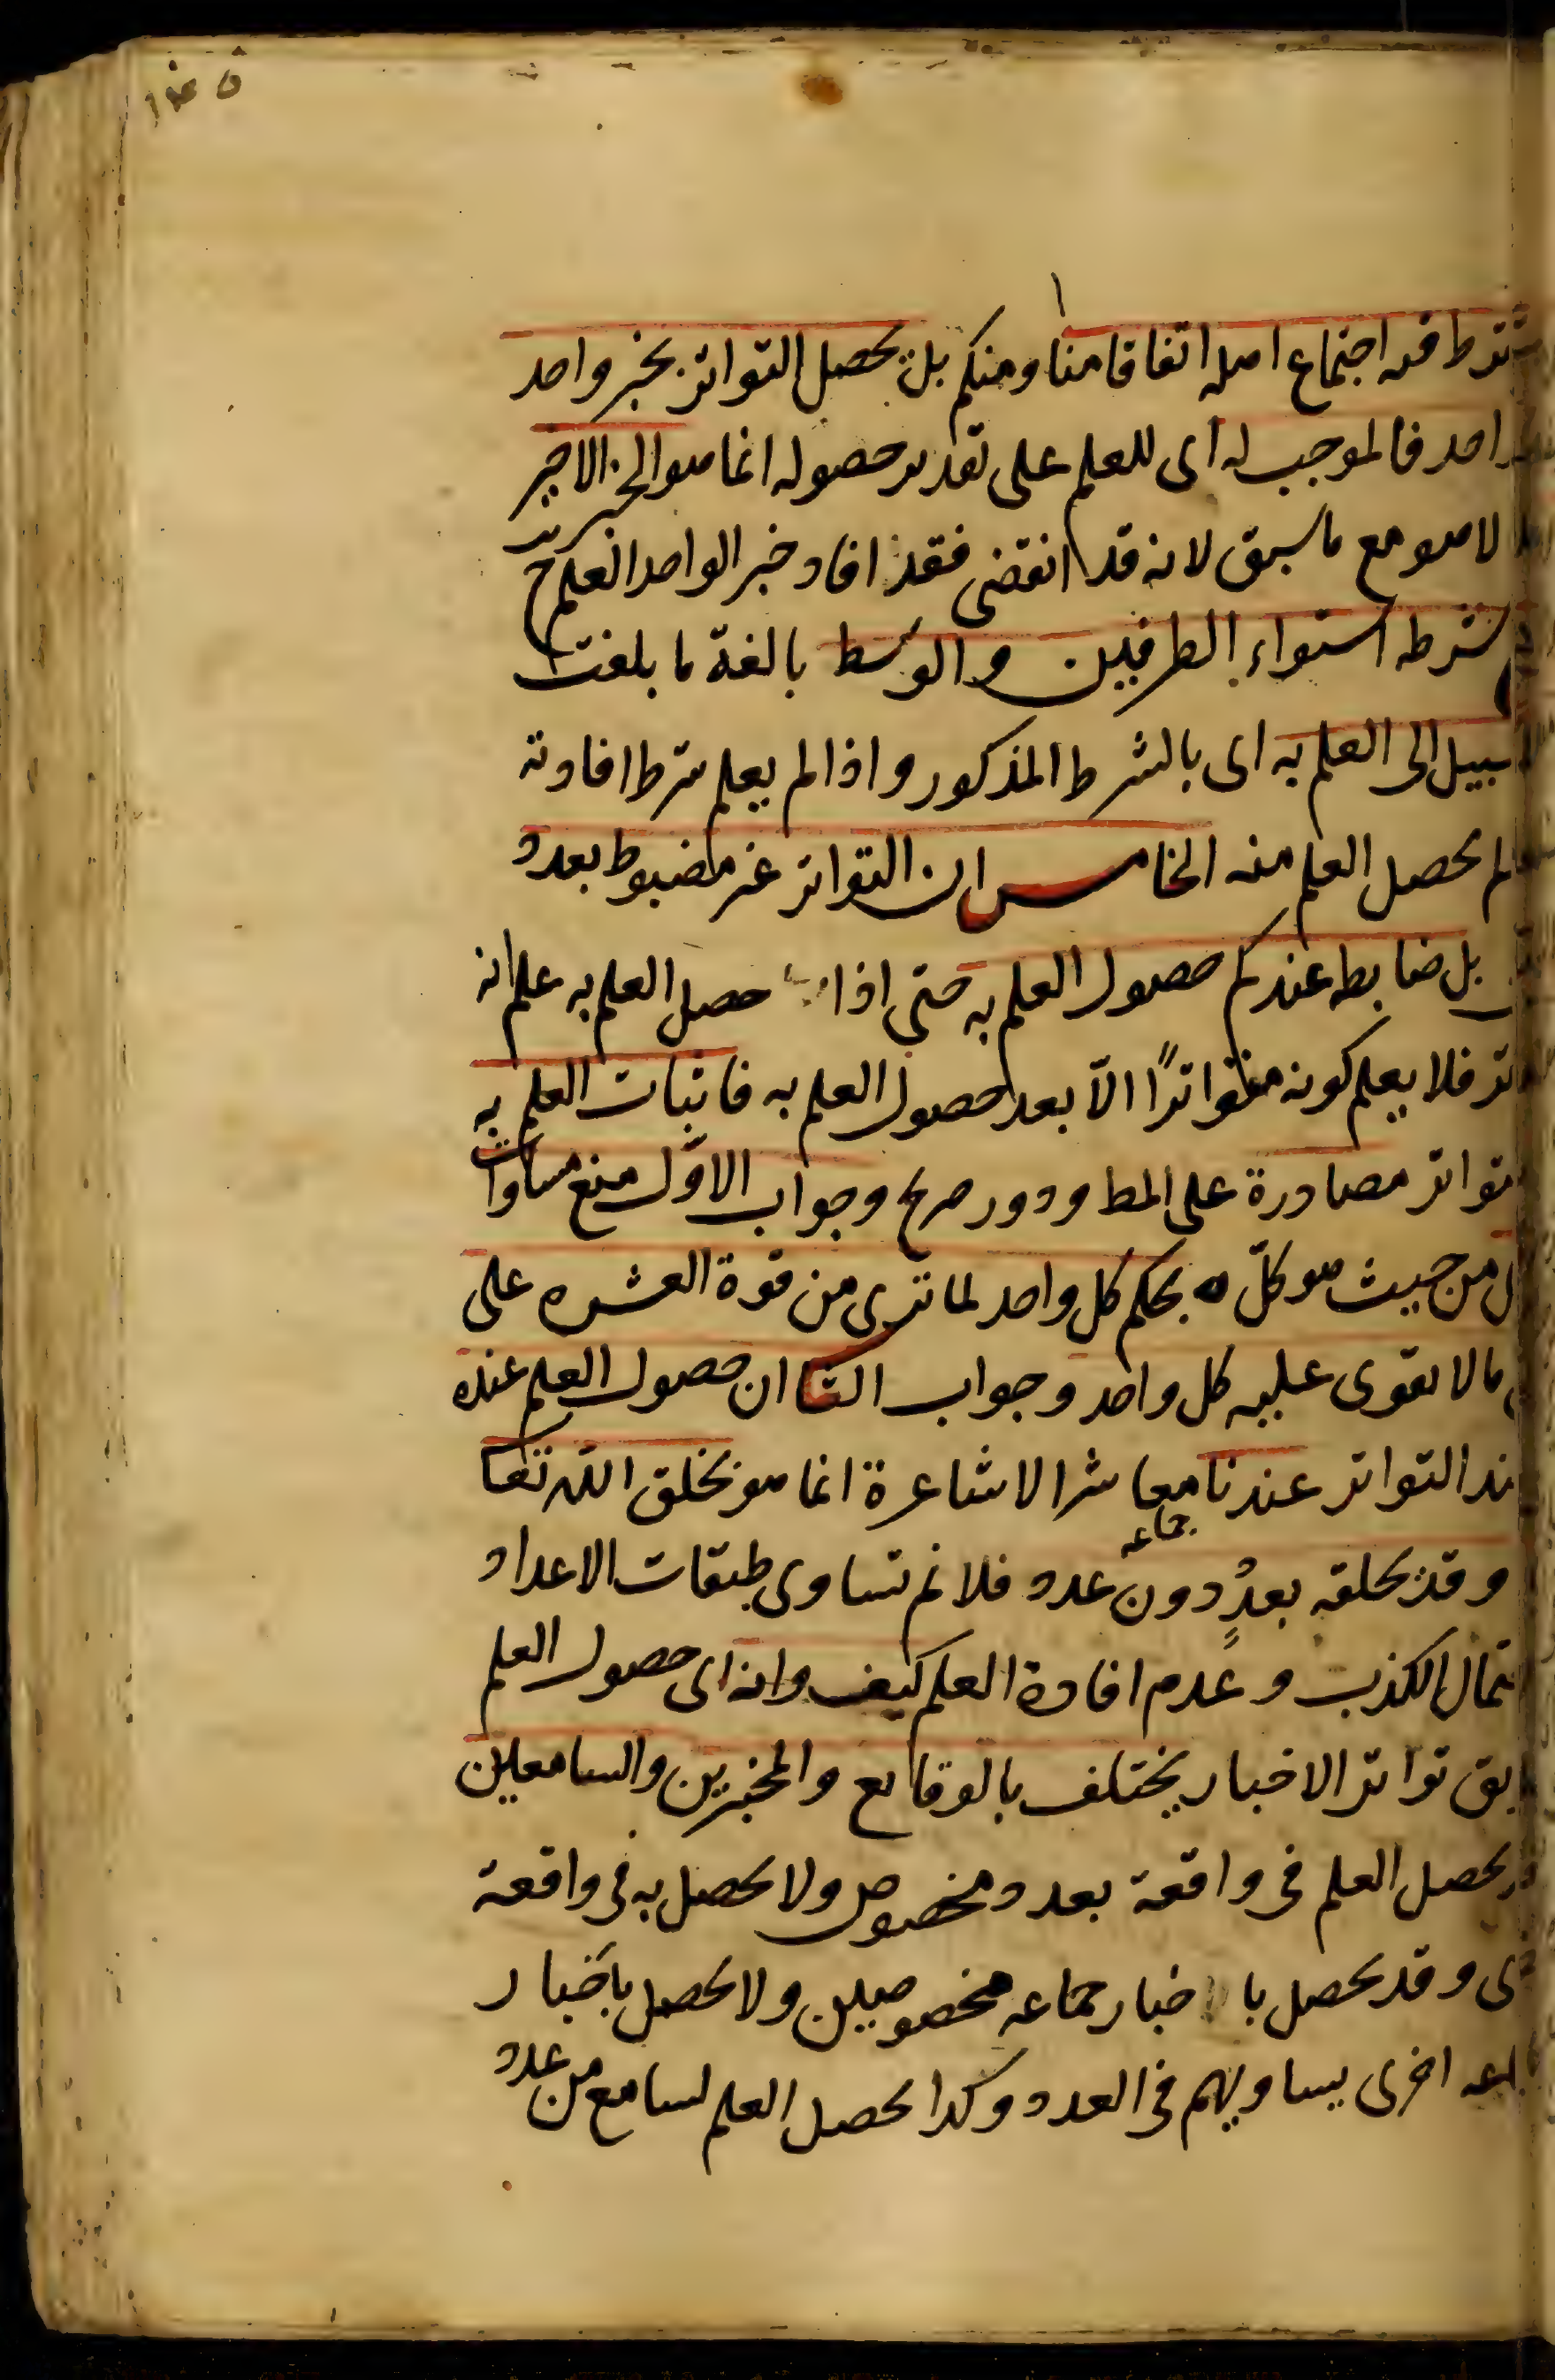 ترط فيه اجتماع اهله اتفاقا منا ومنكم بل يحصل التواتر بخبر واحد
واحد فالموجب له اى للعلم على تقدير حصوله انما هو الخبر الاخير
لا هو مع ما سبق لانه قد انقضى فقد افاد خبر الواحد العلم ح
شرطه استواء الطرفين والوسط بالغة ما بلغت
سبيل الى العلم به اى بالشرط المذكور واذا لم يعلم شرط افادته
لم يحصل العلم منه الخامس ان التواتر غير مضبوط بعدد
بل ضابطه عندكم حصول العلم به حتى اذا حصل العلم به علم انه
تر فلا يعلم كونه متواترًا الّا بعد حصول العلم به فاثبات العلم به
تواتر مصادرة على المط ودور صريح وجواب الاوّل منع مساوات
ل من حيث هو كلّ ه بحكم كل واحد لما ترى من قوة العشره على
ما لا يقوى عليه كل واحد وجواب الثا ان حصول العلم عنده
ند التواتر عندنا معاشر الاشاعرة انما هو بخلق الله تعا
جماعه
وقد يخلقه بعددٍ دون عدد فلا نم تساوى طبقات الاعداد
تمال الكذب وعدم افادة العلم كيف وانه اى حصول العلم
بق تواتر الاخبار يختلف بالوقايع والمخبرين والسامعين
يحصل العلم فى واقعة بعدد مخصوص ولا يحصل به فى واقعة
رى وقد يحصل با خبار جماعه مخصوصين ولا يحصل باخبار
اعه اخرى يساويهم فى العدد وكذا يحصل العلم لسامع من عدد